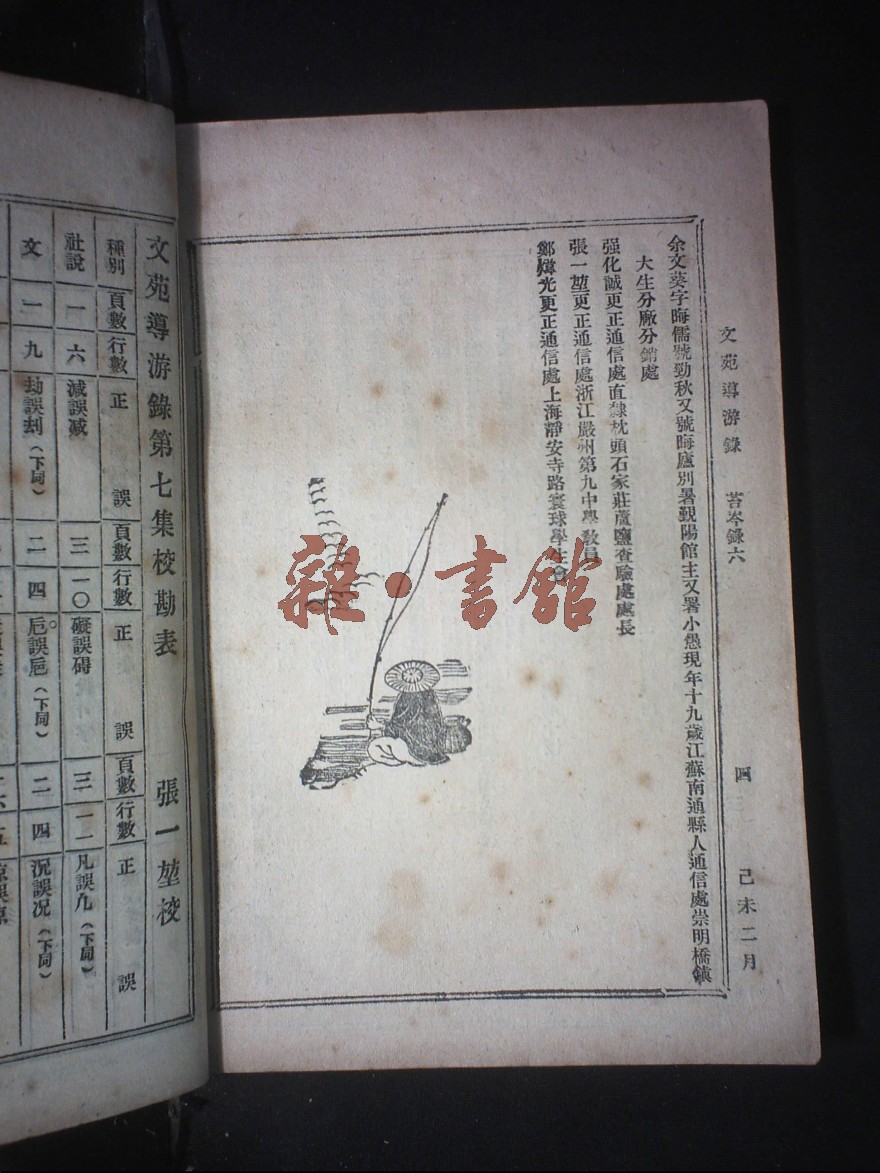 文苑導游錄 苔岑錄六 四 己未二月
余文葵字晦儒號勁秋又號晦廬別署覲陽館主又署小愚現年十九歲江蘇南通縣人通信處崇明橋鎮
大生分廠分銷處
强化誠更正通信處直隸枕頭石家莊蘆鹽查驗處處長
張一堃更正通信處浙江嚴州第九中學敎員
鄭煒光更正通信處上海靜安寺路寰球學生會
雜·書館
文苑導游錄第七集校勘表 張一堃校
種別 頁數 行數 正 誤 頁數 行數 正 誤 頁數 行數 正 誤
社說 一 六 減誤减 三 一〇 礙誤碍 三 一二 凡誤凢(下同)
文 一 九 劫誤刦(下同) 二 四 (下同) 二 四 況誤况(下同)